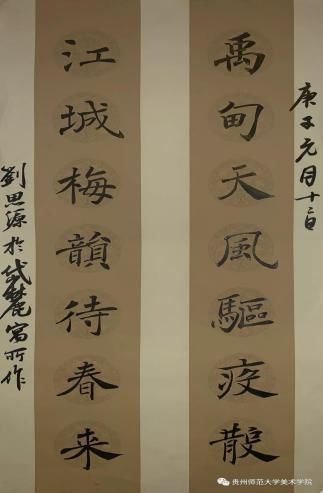 庚子元月十二日
禹甸天風驅疫散
江城梅韻待春来
劉思源於岱麓寓所作
贵州师范大学美术学院